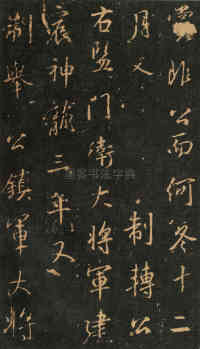 非公而何冬十二
月又制轉公
右監門衛大將軍建
神龍三年又
制舉公鎮軍大將
书法字典